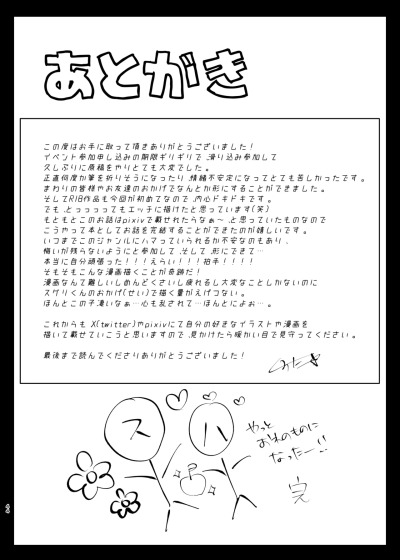 あとがき
この度はお手に取って頂きありがとうございました！
イベント参加申し込みの期限ギリギリで、滑り込み参加して
久しぶりに原稿をやりとても大変でした。
正直何度か筆を折りそうになったり、情緒不安定になってとても苦しかったです。
まわりの皆様やお友達のおかげでなんとか形にすることができました。
そしてR18作品も今回が初めてなので、内心ドキドキです。
でも、とっっっってもエッチに描けたと思っています(笑)
もともとこのお話はpixivで載せれたらなぁ〜、と思っていたものなので
こうやって本としてお話を完結することができたのが嬉しいです。
いつまでこのジャンルにハマっていられるか不安なのもあり、
悔いが残らないようにと参加して、そして、形にできて…
本当に自分頑張った！！！えらい！！！拍手！！！！
そもそもこんな漫画描くことが奇跡だ！
漫画なんて難しいしめんどくさいし疲れるし大変なことしかないのに
スグリくんのおかげ(せい)で描く量がえげつない。
ほんとこの子凄いなぁ…心も乱されて…ほんとによぉ…。
これからも X(twitter)やpixivにて自分の好きなイラストや漫画を
描いて載せていこうと思いますので、見かけたら暖かい目で見守ってください。
最後まで読んでくださりありがとうございました！
ス
ハ
やっと
おれのものに
なったー!!
完